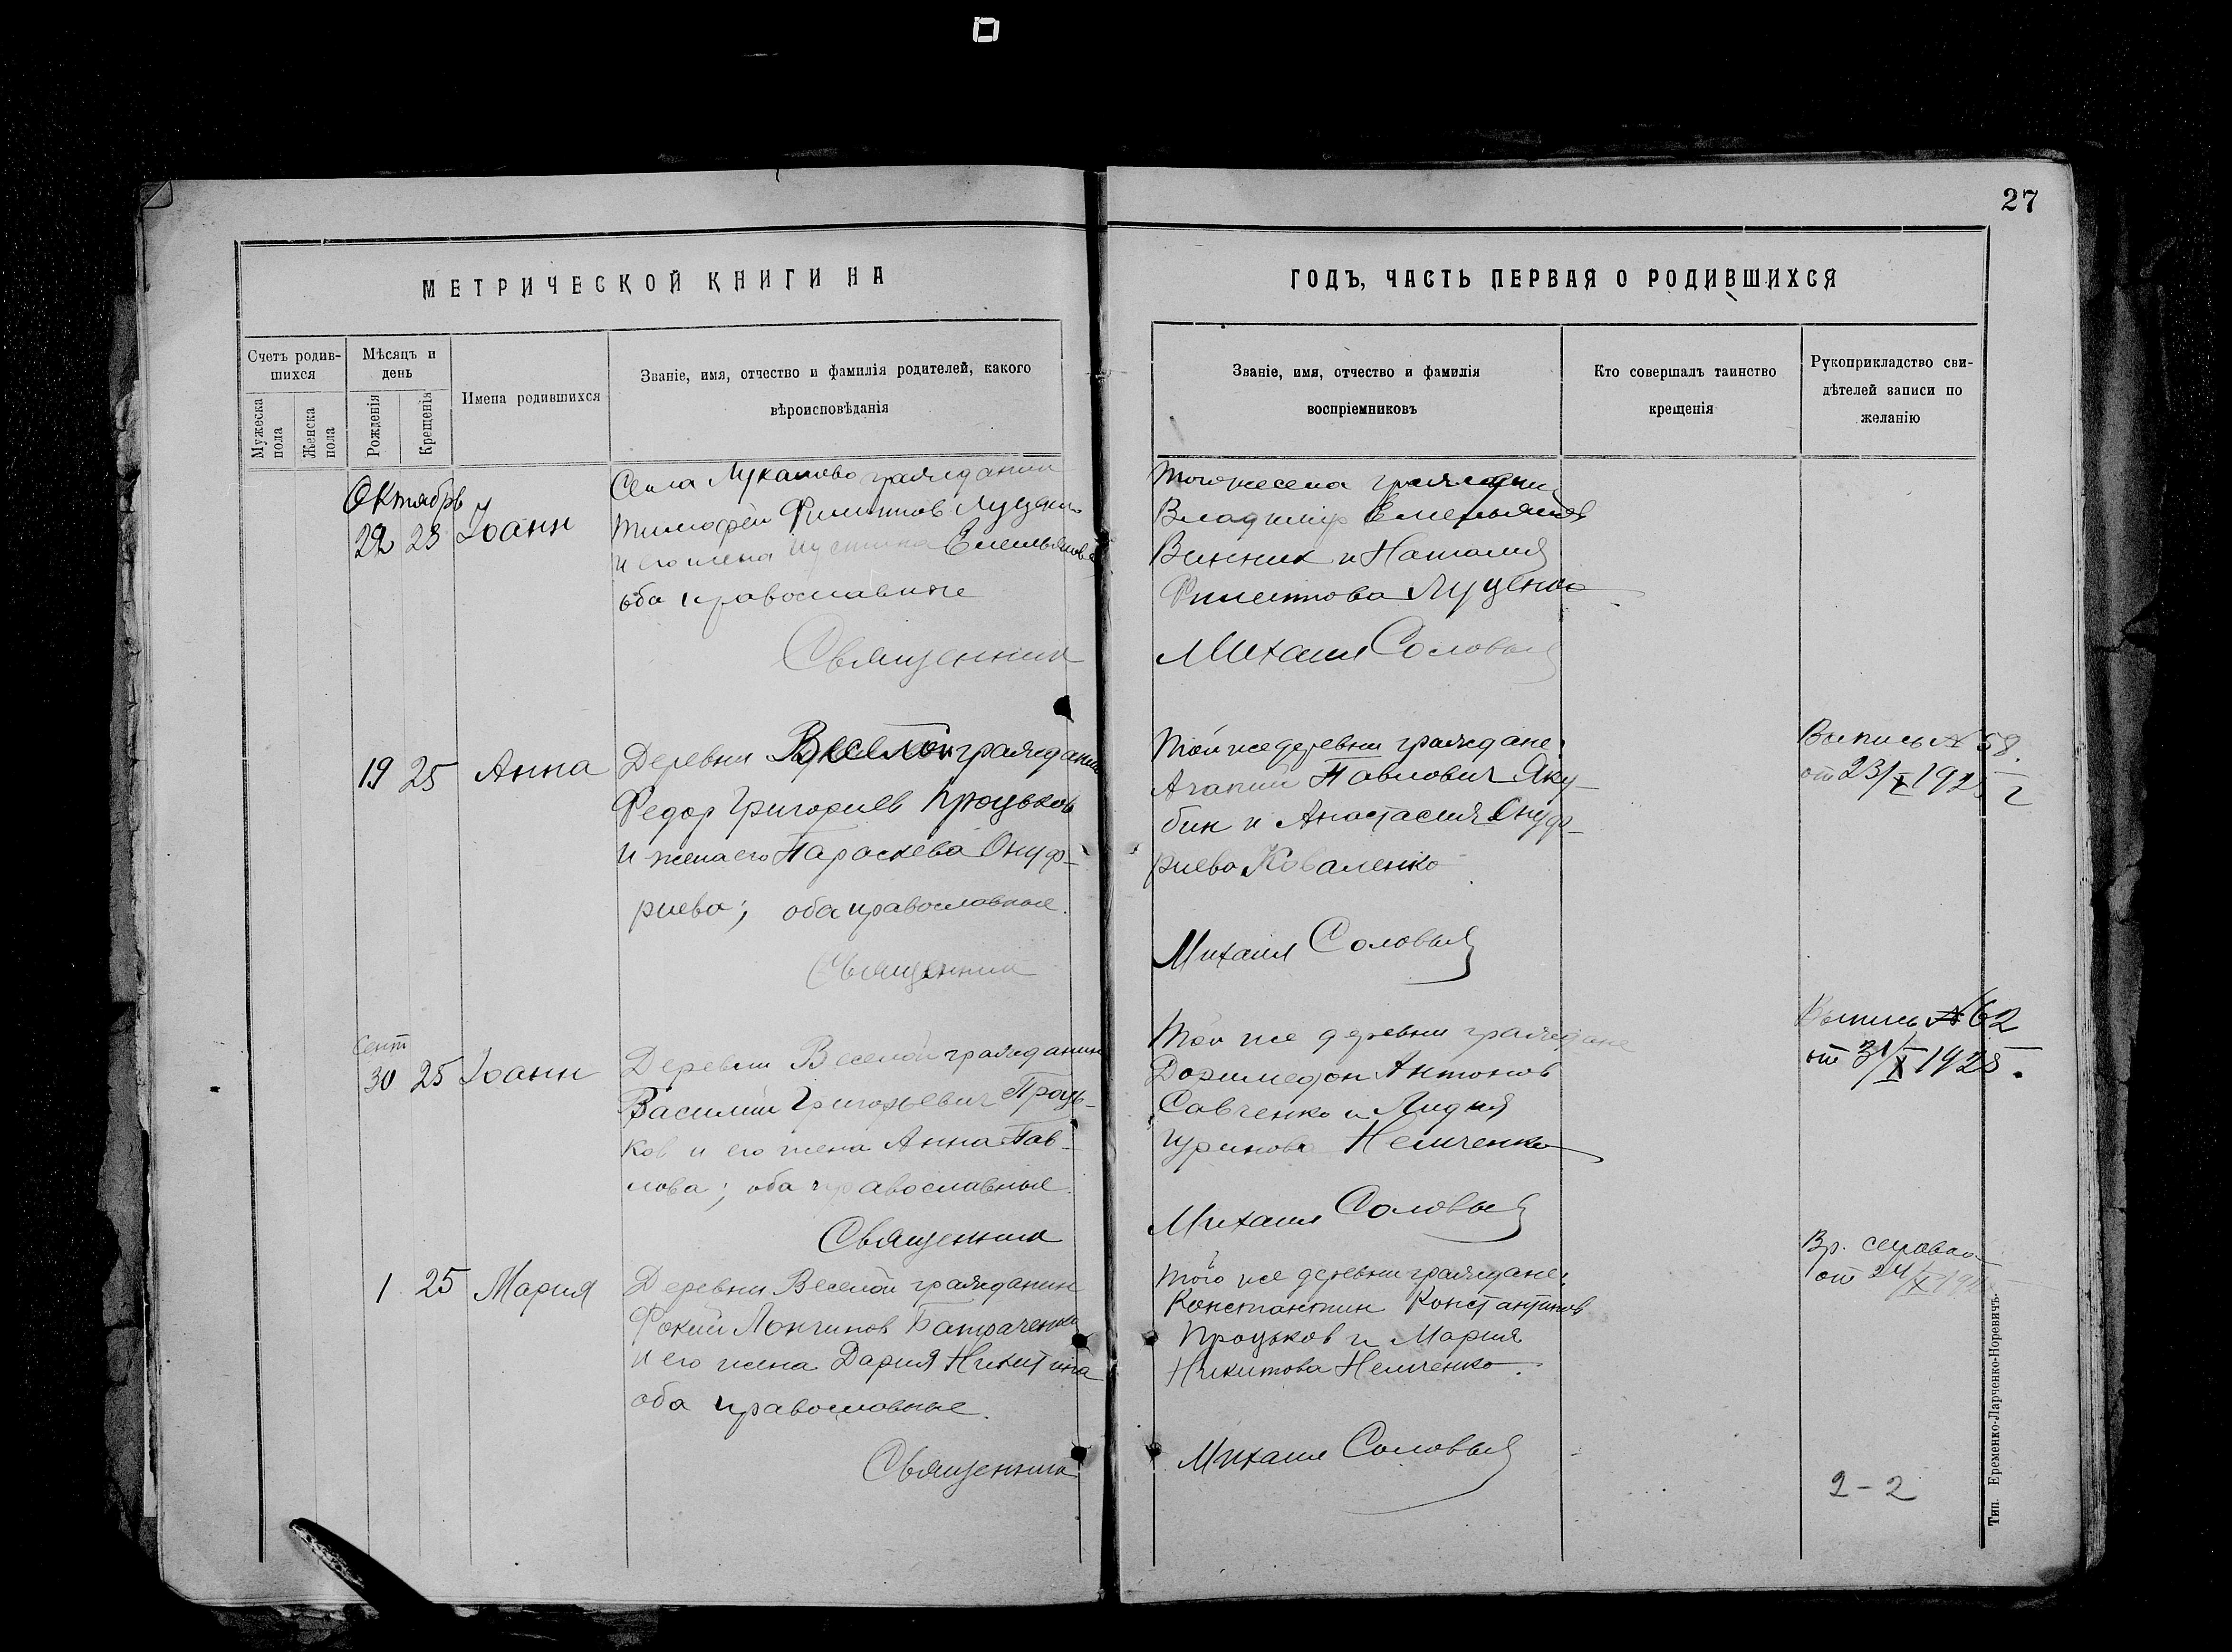 27
МЕТРИЧЕСКОЙ КНИГИ НА
ГОДЪ, ЧАСТЬ ПЕРВАЯ О РОДИВШИХСЯ
Счетъ родив-
шихся
Мужеска пола
Женска пола
Мѣсяцъ и
день
Рожденія
Крещенія
Имена родившихся
Званіе, имя, отчество и фамилія родителей, какого
вѣроисповѣданія
Званіе, имя, отчество и фамилія
воспріемниковъ
Кто совершалъ таинство
крещенія
Рукоприкладство сви-
дѣтелей записи по
желанію
Октябрь
22 23 Іоанн
Села гражданин
Тимофей Филиппов Луценко
и его жена Иустина Емельянова
оба православные
Священник
Того же села граждане
Владимир Емельянов
Винник и Наталия
Филиппова Луценко
Михаил Соловый
19 25 Анна
Деревни Веселой гражданин
Федор Григориев Процьков
и жена его Параскева Онуф-
риева; оба православные.
Священник
Той же деревни граждане:
Агапий Павлович Яку-
бин и Анастасия Онуф-
риева Коваленко
Михаил Соловый
Выпись № 58.
от 23/X 192
Сент
30 25 Іоанн
Деревни Веселой гражданин
Василий Григорьевич Проць-
ков и его жена Анна Пав-
лова; оба православные.
Священник
Той же деревни граждане
Доримедон Антонов
Савченко и Лидия
Немченко
Михаил Соловый
Выпись № 62
от 31/X 1925.
1 25 Мария
Деревни Веселой гражданин
Фокий Лонгинов Батраченко
и его жена Дария Никитина
оба православные.
Священник
Того же деревни граждане:
Константин Константинов
Процьков и Мария
Никитова Немченко.
Михаил Соловый
от 24/X 19
2-2
Тип. Еременко-Ларченко-Норевичъ.